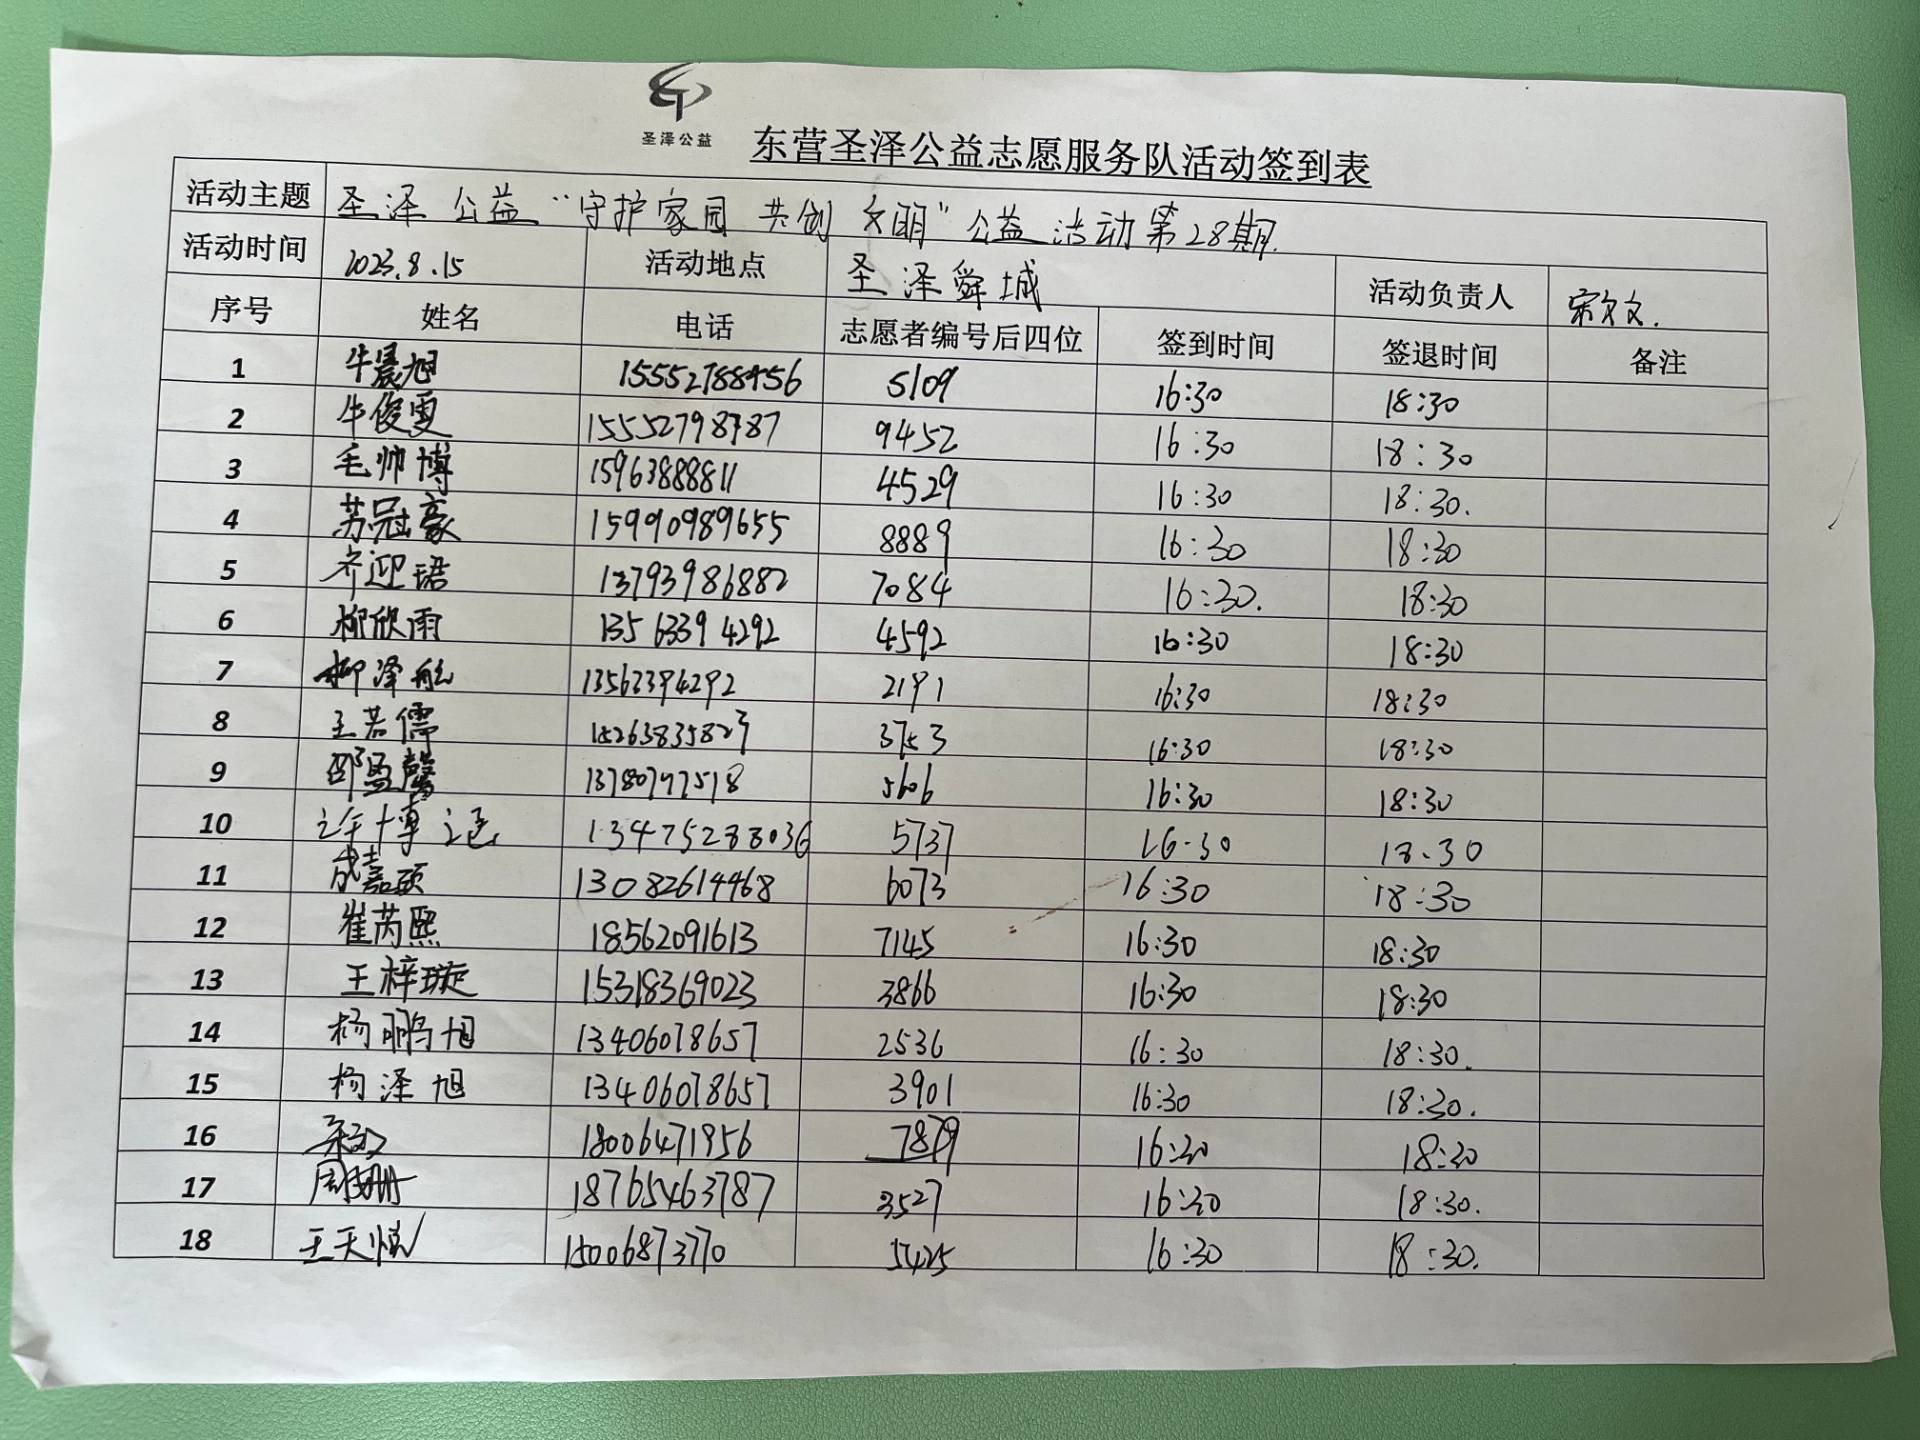 圣泽公益
东营圣泽公益志愿服务队活动签到表
活动主题 圣泽公益“守护家园 共创文明”公益活动第28期.
活动时间 2023.8.15 活动地点 圣泽舜城 活动负责人 宋文文.
序号 姓名 电话 志愿者编号后四位 签到时间 签退时间 备注
1 牛晨旭 15552788456 5109 16:30 18:30
2 牛俊雯 15552798787 9452 16:30 18:30
3 毛帅博 15963888811 4529 16:30 18:30.
4 苏冠豪 15990989655 8889 16:30 18:30
5 齐迎珺 13793986882 7084 16:30. 18:30
6 柳欣雨 13563394292 4592 16:30 18:30
7 柳泽航 13563394292 2191 16:30 18:30
8 王若儒 15263835827 3753 16:30 18:30
9 邵孟馨 13780797518 5606 16:30 18:30
10 许博 13475288036 5737 16.30 18.30
11 成嘉硕 13082614468 6073 16:30 18:30
12 崔芮熙 18562091613 7145 16:30 18:30
13 王梓璇 15318369023 3866 16:30 18:30
14 杨鹏旭 13406078657 2536 16:30 18:30.
15 杨泽旭 13406078657 3901 16:30 18:30.
16 18006471956 7879 16:30 18:30
17 周 18765463787 3527 16:30 18:30.
18 王天悦 15006873770 5425 16:30 18:30.